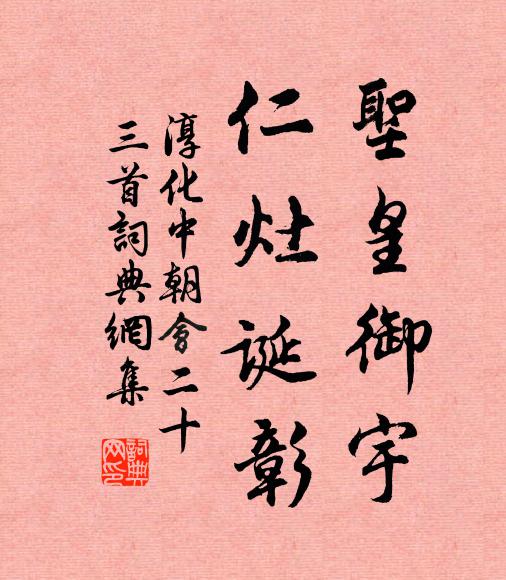 聖皇御宇
仁灶誕彰
淳化中朝會二十
三首詞典網集
詞典網印